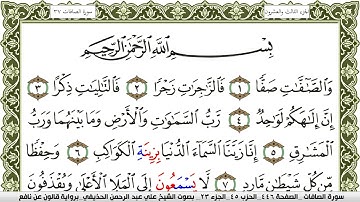 الجزء الثالث والعشرون سورة الصافات ٣٧
بِسْمِ اللَّهِ الرَّحْمَٰنِ الرَّحِيمِ
وَالصَّٰٓفَّٰتِ صَفّٗا ١ فَالزَّٰجِرَٰتِ زَجْرٗا ٢ فَالتَّٰلِيَٰتِ ذِكْرًا ٣
إِنَّ إِلَٰهَكُمْ لَوَٰحِدٞ ٤ رَّبُّ السَّمَٰوَٰتِ وَالْأَرْضِ وَمَا بَيْنَهُمَا وَرَبُّ
الْمَشَٰرِقِ ٥ إِنَّا زَيَّنَّا السَّمَآءَ الدُّنْيَا بِزِينَةِ الْكَوَاكِبِ ٦ وَحِفْظٗا
مِّن كُلِّ شَيْطَٰنٖ مَّارِدٖ ٧ لَّا يَسْمَعُونَ إِلَى الْمَلَإِ الْأَعْلَىٰ وَيُقْذَفُونَ
سورة الصافات الصفحة ٤٤٦ الحزب ٤٥ الجزء ٢٣ بصوت الشيخ علي عبد الرحمن الحذيفي برواية قالون عن نافع